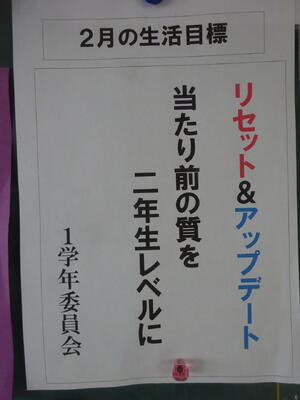 ２月の生活目標
リセット&アップデート
当たり前の質を
二年生レベルに
１学年委員会